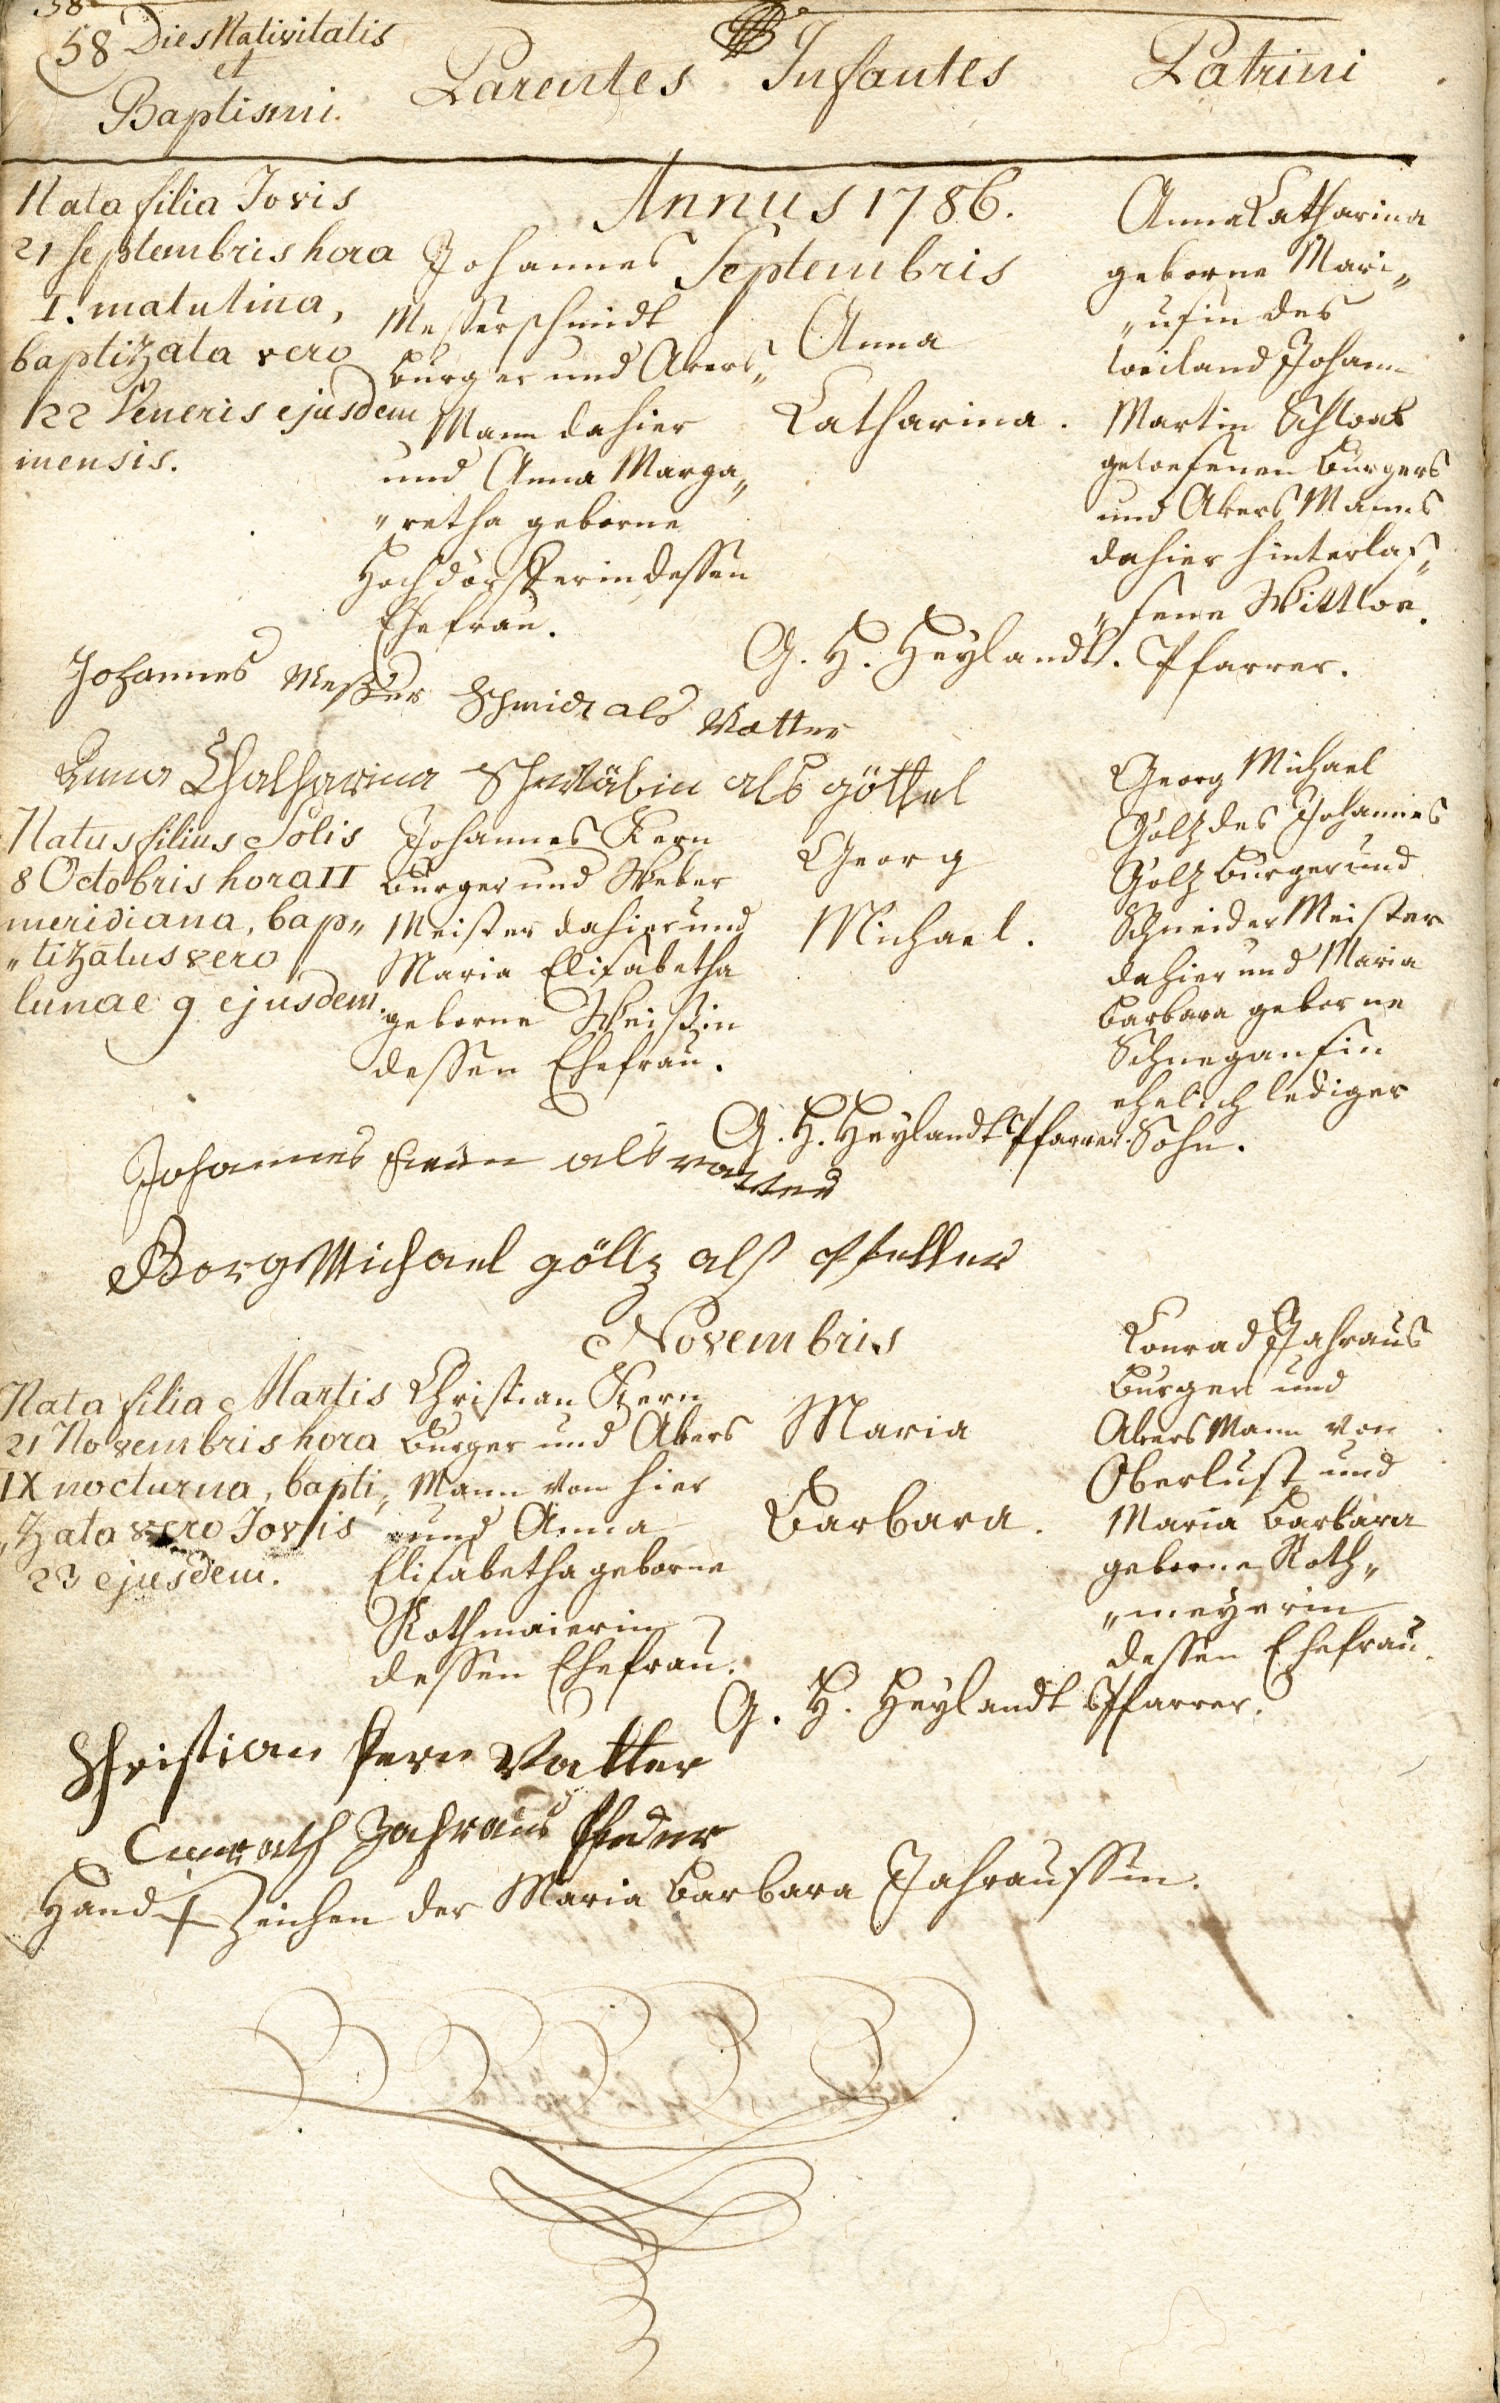 58 Dies Nativitatis
et
Baptismi.
Parentes
Infantes
Patrini
Annus 1786.
Septembris
Nata filia Jovis
21 Septembris hora
I. matutina,
baptizata vero
22 Veneris ejusdem
mensis.
Johannes
Messerschmidt
burger und Akers„
Mann dahier
und Anna Marga„
„retha geborne
Hochdörfferin dessen
Ehefrau.
Anna
Catharina.
Anna Catharina
geborne Mari„
„usin des
weiland Johann
Martin Schwab
gewesenen burgers
und Akers Manns
dahier hinterlas„
„sene Wittwe.
G. H. Heylandt. Pfarrer.
Johannes Messer Schmidt als Vatter
Anna Chatharina Schwäbin als göttel
Natus filius Solis
8 Octobris hora II
meridiana, bap„
„tizatus vero
lunae 9 ejusdem.
Johannes Kern
burger und Weber
Meister dahier und
Maria Elisabetha
geborne Weissin
dessen Ehefrau.
Georg
Michael.
Georg Michael
Golz des Johannes
Golz burger und
Schneider Meister
dahier und Maria
barbara geborne
Schnegansin
ehelich lediger
Sohn.
G. H. Heylandt Pfarrer.
Johannes als vatter
Georg Michael göltz alß Pfetter
Novembris
Nata filia Martis
21 Novembris hora
IX nocturna, bapti„
„zata vero Jovis
23 ejusdem.
Christian Kern
burger und Akers
Mann von hier
und Anna
Elisabetha geborne
Rothmaierin
dessen Ehefrau.
Maria
Barbara.
Conrad Jahraus
burger und
Akers Mann von
Oberlust und
Maria Barbara
geborne Roth„
„meyerin
dessen Ehefrau.
G. H. Heylandt Pfarrer.
Christian kern Vatter
Cunrath Jahraus
Hand + Zeichen der Maria Barbara Jahraussin.